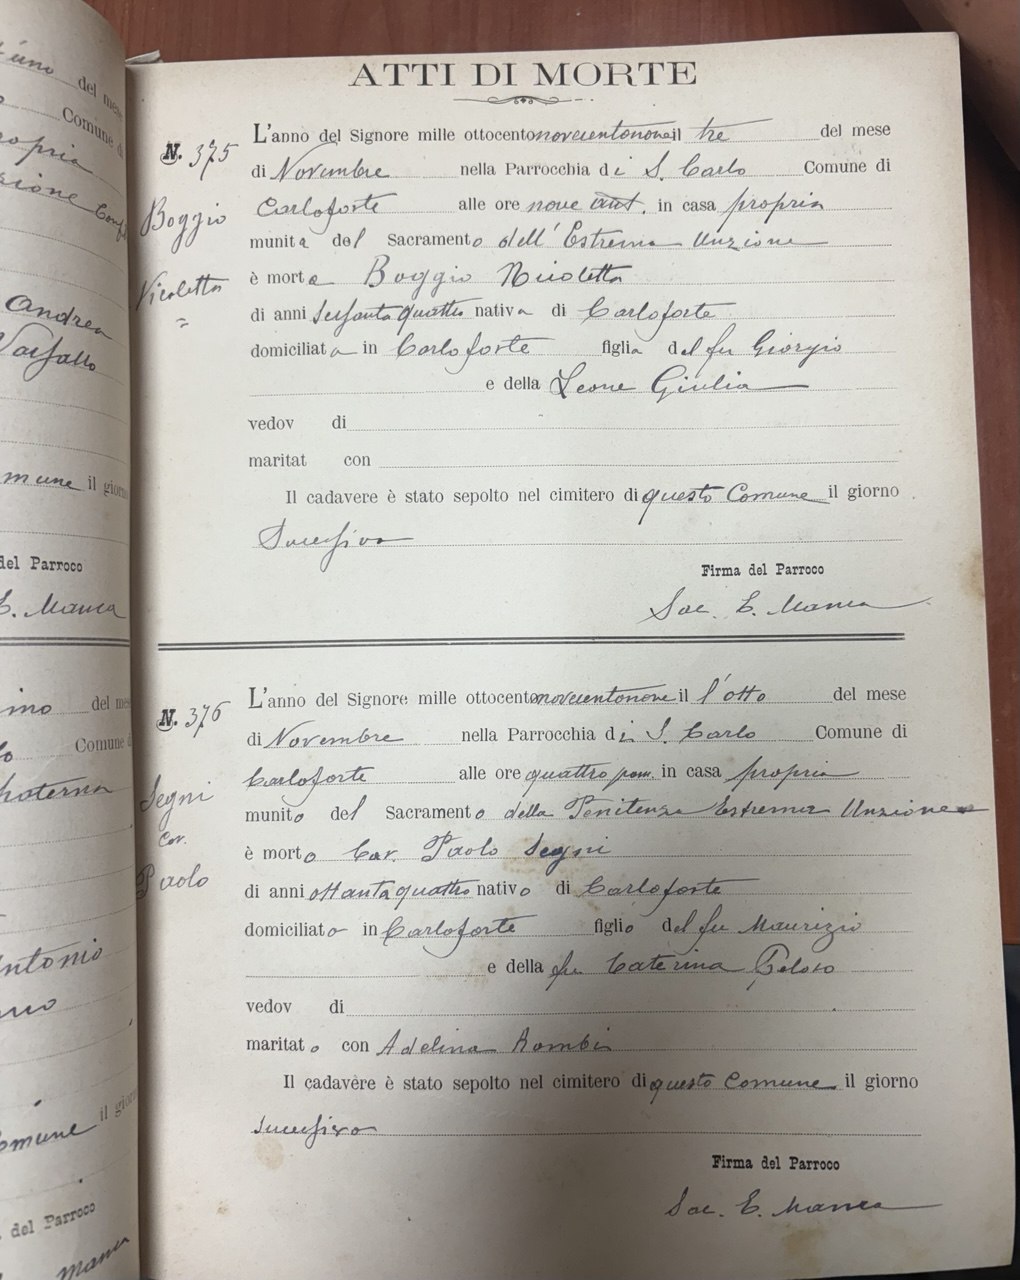 ino del mese
Comune di
ropria
zione Conf
Andrea
Varsallo
mune il giorno
del Parroco
E. Manca
ino del mese
Comune d
paterna
Antonio
omune il giorno
del Parroco
Manca
ATTI DI MORTE
N. 375
Boggio
Nicoletta
L'anno del Signore mille ottocento novecentonove il tre del mese
di Novembre nella Parrocchia di S. Carlo Comune di
Carloforte alle ore nove ant. in casa propria
munita del Sacramento dell'Estrema Unzione
è morta Boggio Nicoletta
di anni sessantaquattro nativa di Carloforte
domiciliata in Carloforte figlia del fu Giorgio
e della Leone Giulia
vedov di
maritat con
Il cadavere è stato sepolto nel cimitero di questo Comune il giorno
Successivo
Firma del Parroco
Sac. E. Manca
N. 376
Segni
Cav.
Paolo
L'anno del Signore mille ottocento novecentonove il l'otto del mese
di Novembre nella Parrocchia di S. Carlo Comune di
Carloforte alle ore quattro pom. in casa propria
munito del Sacramento della Penitenza Estrema Unzione
è morto Cav. Paolo Segni
di anni ottantaquattro nativo di Carloforte
domiciliato in Carloforte figlio del fu Maurizio
e della fu Caterina Peloso
vedov di
maritato con Adelina Rombi
Il cadavere è stato sepolto nel cimitero di questo Comune il giorno
successivo
Firma del Parroco
Sac. E. Manca